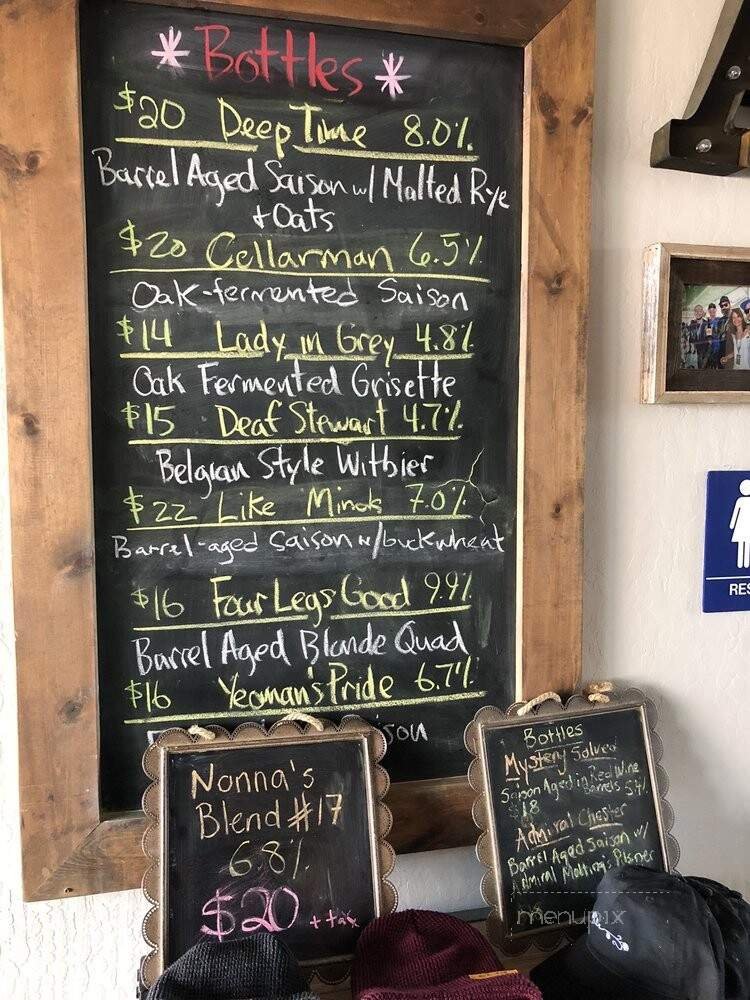 * Bottles *
$20 Deep Time 8.0%
Barrel Aged Saison w/ Malted Rye
+ Oats
$20 Cellarman 6.5%
Oak-fermented Saison
$14 Lady in Grey 4.8%
Oak Fermented Grisette
$15 Deaf Stewart 4.7%
Belgian Style Witbier
$22 Like Minds 7.0%
Barrel-aged Saison w/buckwheat
$16 Four Legs Good 9.9%
Barrel Aged Blonde Quad
$16 Yeoman's Pride 6.7%
Nonna's
Blend #17
6.8%
$20 + tax
Bottles
Mystery Solved
Saison Aged in Red Wine
Barrels 5.4%
$18
Admiral Chester
Barrel Aged Saison w/
Admiral Maltings Pilsner
menupix
RES